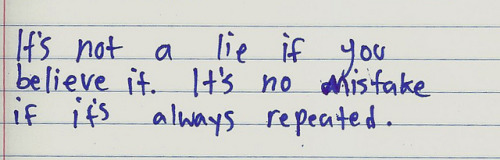 It's not a lie if you
believe it. It's no mistake
if it's always repeated.